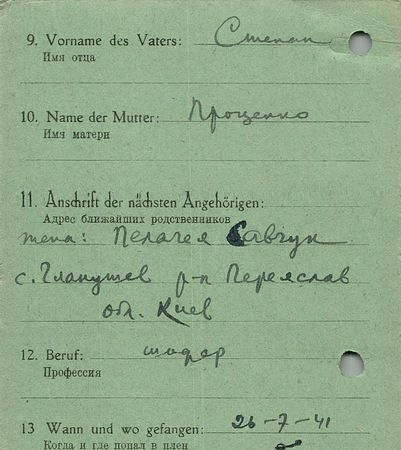 9. Vorname des Vaters: Степан
Имя отца
10. Name der Mutter: Проценко
Имя матери
11. Anschrift der nächsten Angehörigen:
Адрес ближайших родственников
жена: Пелагея Савчук
с. р-н Переяслав
обл. Киев
12. Beruf:
Профессия
13 Wann und wo gefangen: 26-7-41
Когда и где попал в плен